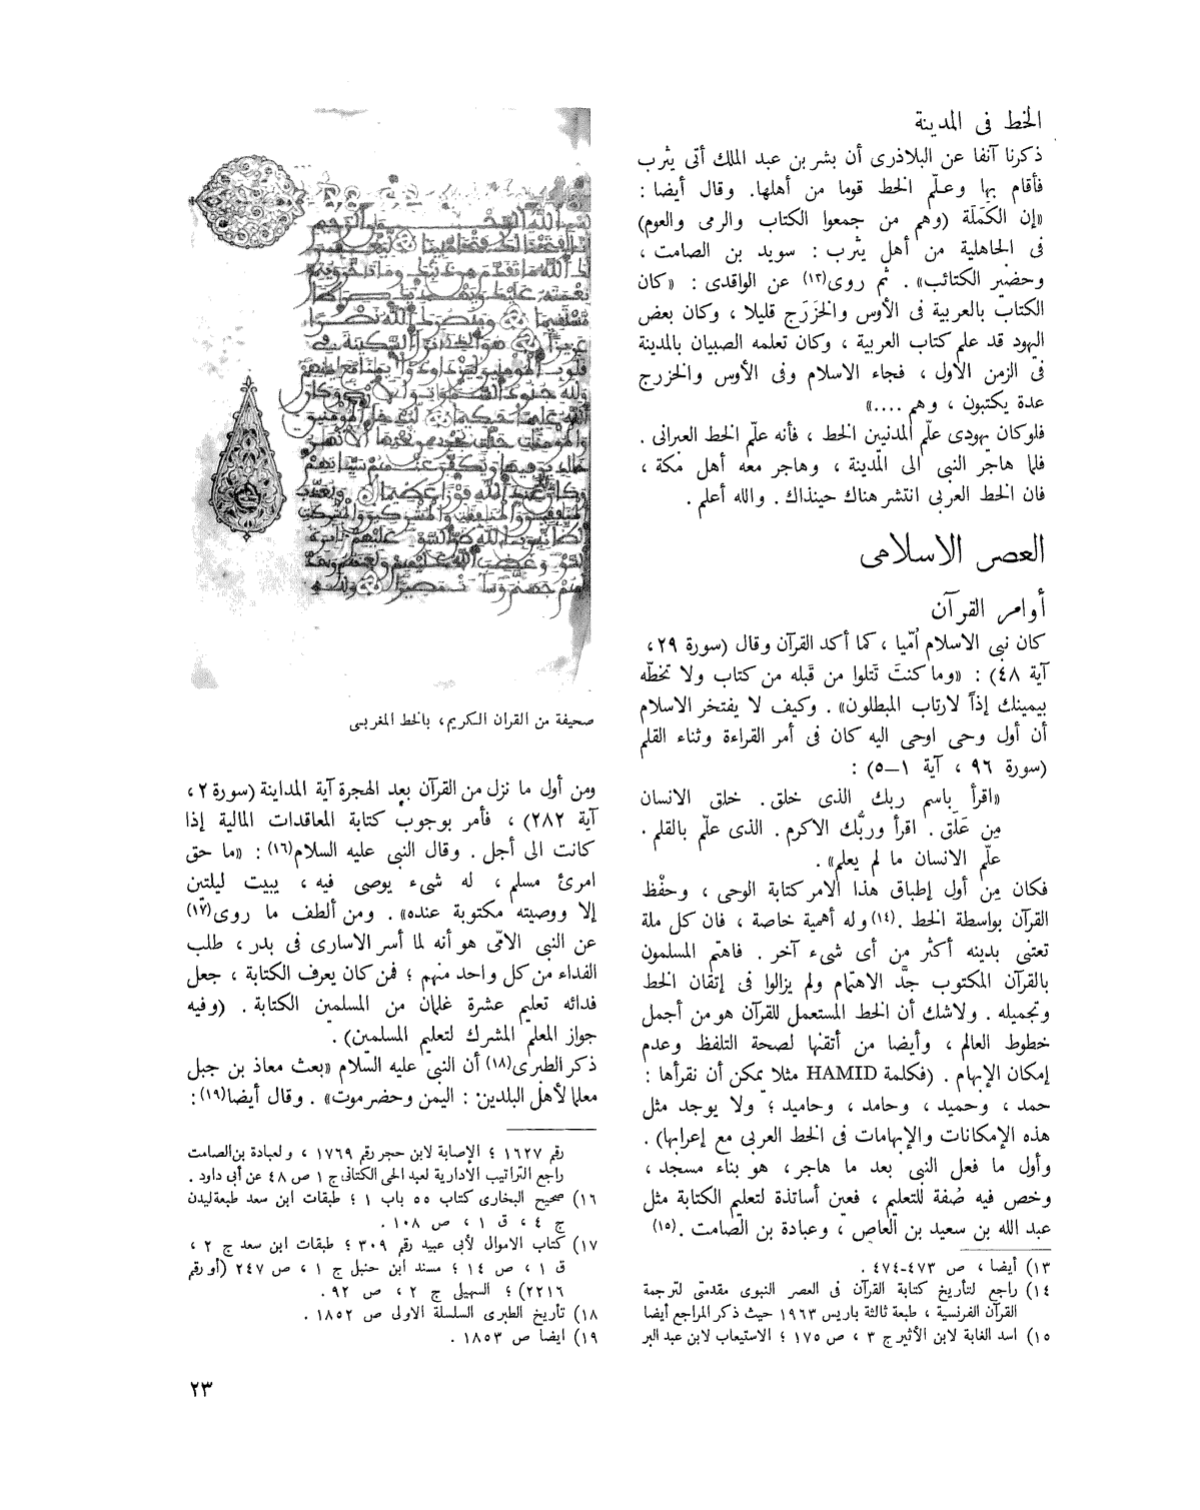 الخط فى المدينة
ذكرنا آنفا عن البلاذرى أن بشر بن عبد الملك أتى يثرب
فأقام بها وعلّم الخط قوما من أهلها. وقال أيضا :
«إن الكَمَلَة (وهم من جمعوا الكتاب والرمى والعوم)
فى الجاهلية من أهل يثرب : سويد بن الصامت ،
وحضير الكتائب» . ثم روى(١٣) عن الواقدى : «كان
الكتاب بالعربية فى الأوس والخَزرَج قليلا ، وكان بعض
اليهود قد علم كتاب العربية ، وكان تعلمه الصبيان بالمدينة
فى الزمن الأول ، فجاء الاسلام وفى الأوس والخزرج
عدة يكتبون ، وهم ....»
فلوكان يهودى علّم المدنيين الخط ، فأنه علّم الخط العبرانى .
فلما هاجر النبى الى المدينة ، وهاجر معه أهل مكة ،
فان الخط العربى انتشر هناك حينذاك . والله أعلم .
العصر الاسلامى
أوامر القرآن
كان نبى الاسلام اُمّيا ، كما أكد القرآن وقال (سورة ٢٩،
آية ٤٨) : «وما كنتَ تَتلوا من قَبله من كتاب ولا تخطّه
بيمينك إذاً لارتاب المبطلون» . وكيف لا يفتخر الاسلام
أن أول وحى اوحى اليه كان فى أمر القراءة وثناء القلم
(سورة ٩٦ ، آية ١–٥) :
«اقرأ باسم ربك الذى خلق . خلق الانسان
مِن عَلَق . اقرأ وربُّك الاكرم . الذى علّم بالقلم .
علّم الانسان ما لم يعلم» .
فكان مِن أول إطباق هذا الامر كتابة الوحى ، وحفْظ
القرآن بواسطة الخط .(١٤) وله أهمية خاصة ، فان كل ملة
تعتنى بدينه أكثر من أى شىء آخر . فاهتم المسلمون
بالقرآن المكتوب جدَّ الاهتمام ولم يزالوا فى إتقان الخط
وتجميله . ولاشك أن الخط المستعمل للقرآن هو من أجمل
خطوط العالم ، وأيضا من أتقنها لصحة التلفظ وعدم
إمكان الإبهام . (فكلمة HAMID مثلا يمكن أن نقرأها :
حمد ، وحميد ، وحامد ، وحاميد ؛ ولا يوجد مثل
هذه الإمكانات والإبهامات فى الخط العربى مع إعرابها) .
وأول ما فعل النبى بعد ما هاجر، هو بناء مسجد ،
وخص فيه صُفة للتعليم ، فعين أساتذة لتعليم الكتابة مثل
عبد الله بن سعيد بن العاص ، وعبادة بن الصامت .(١٥)
١٣) أيضا ، ص ٤٧٣-٤٧٤ .
١٤) راجع لتأريخ كتابة القرآن فى العصر النبوى مقدمتى لترجمة
القرآن الفرنسية ، طبعة ثالثة باريس ١٩٦٣ حيث ذكر المراجع أيضا
١٥) اسد الغابة لابن الأثير ج ٣ ، ص ١٧٥ ؛ الاستيعاب لابن عبد البر
صحيفة من القران الكريم، بالخط المغربى
ومن أول ما نزل من القرآن بعد الهجرة آية المداينة (سورة ٢ ،
آية ٢٨٢) ، فأمر بوجوب كتابة المعاقدات المالية إذا
كانت الى أجل . وقال النبى عليه السلام(١٦) : «ما حق
امرئ مسلم ، له شىء يوصى فيه ، يبيت ليلتين
إلا ووصيته مكتوبة عنده» . ومن ألطف ما روى(١٧)
عن النبى الامّى هو أنه لما أسر الاسارى فى بدر ، طلب
الفداء من كل واحد منهم ؛ فمن كان يعرف الكتابة ، جعل
فدائه تعليم عشرة غلمان من المسلمين الكتابة . (وفيه
جواز المعلم المشرك لتعليم المسلمين) .
ذكر الطبرى(١٨) أن النبى عليه السلام «بعث معاذ بن جبل
معلما لأهل البلدين : اليمن وحضرموت» . وقال أيضا(١٩) :
رقم ١٦٢٧ ؛ الإصابة لابن حجر رقم ١٧٦٩ ، ولعبادة بن الصامت
راجع التراتيب الادارية لعبد الحى الكتانى ج ١ ص ٤٨ عن أبى داود .
١٦) صحيح البخارى كتاب ٥٥ باب ١ ؛ طبقات ابن سعد طبعة ليدن
ج ٤ ، ق ١ ، ص ١٠٨ .
١٧) كتاب الاموال لأبى عبيد رقم ٣٠٩ ؛ طبقات ابن سعد ج ٢ ،
ق ١ ، ص ١٤ ؛ مسند ابن حنبل ج ١ ، ص ٢٤٧ (أو رقم
٢٢١٦) ؛ السهيلى ج ٢ ، ص ٩٢ .
١٨) تأريخ الطبرى السلسلة الاولى ص ١٨٥٢ .
١٩) ايضا ص ١٨٥٣ .
٢٣